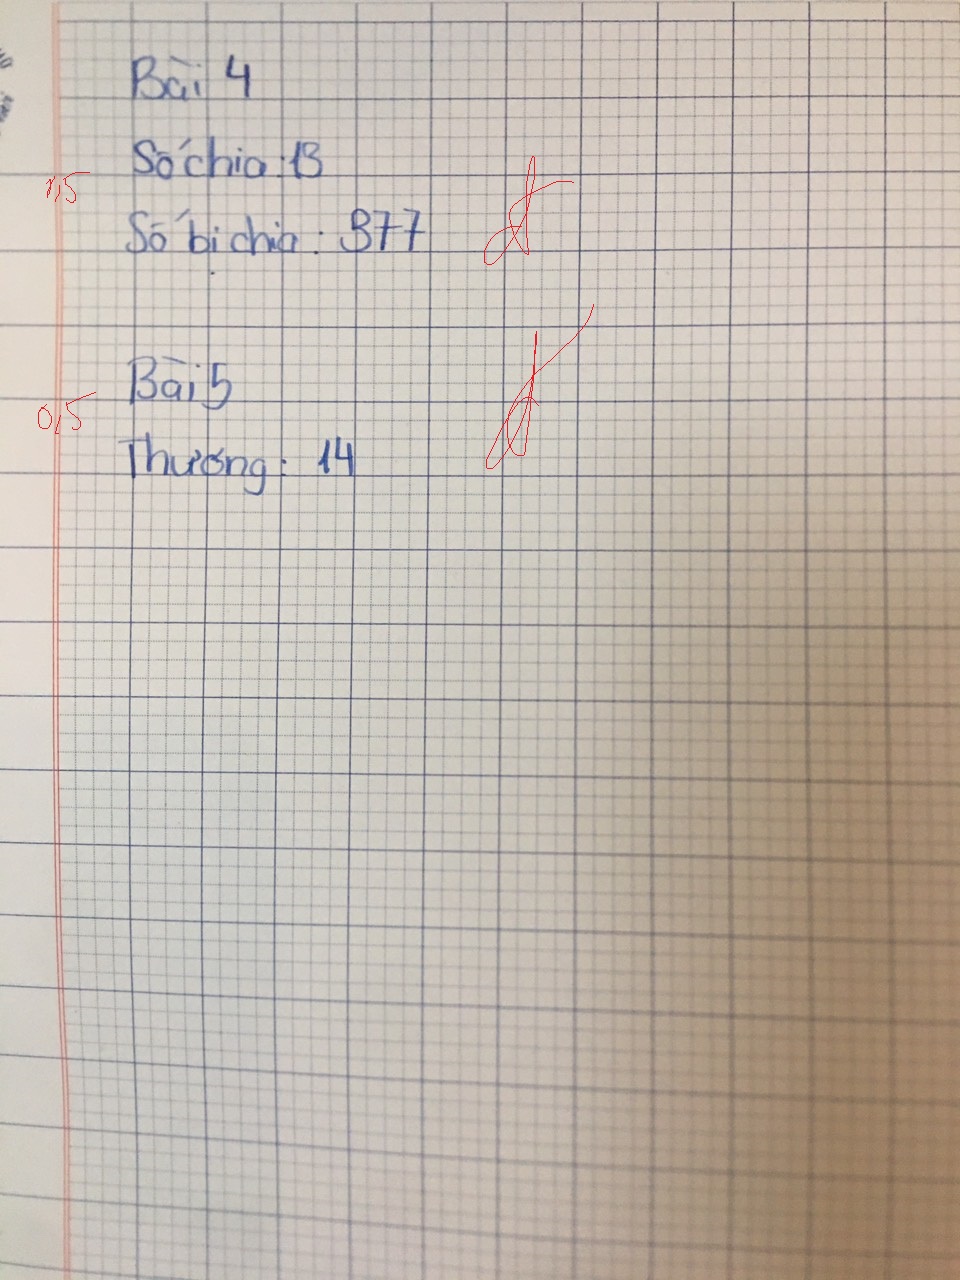 Bài 4
Số chia: 13
1,5
Số bị chia: 377
đ
Bài 5
0,5
đ
Thương: 14